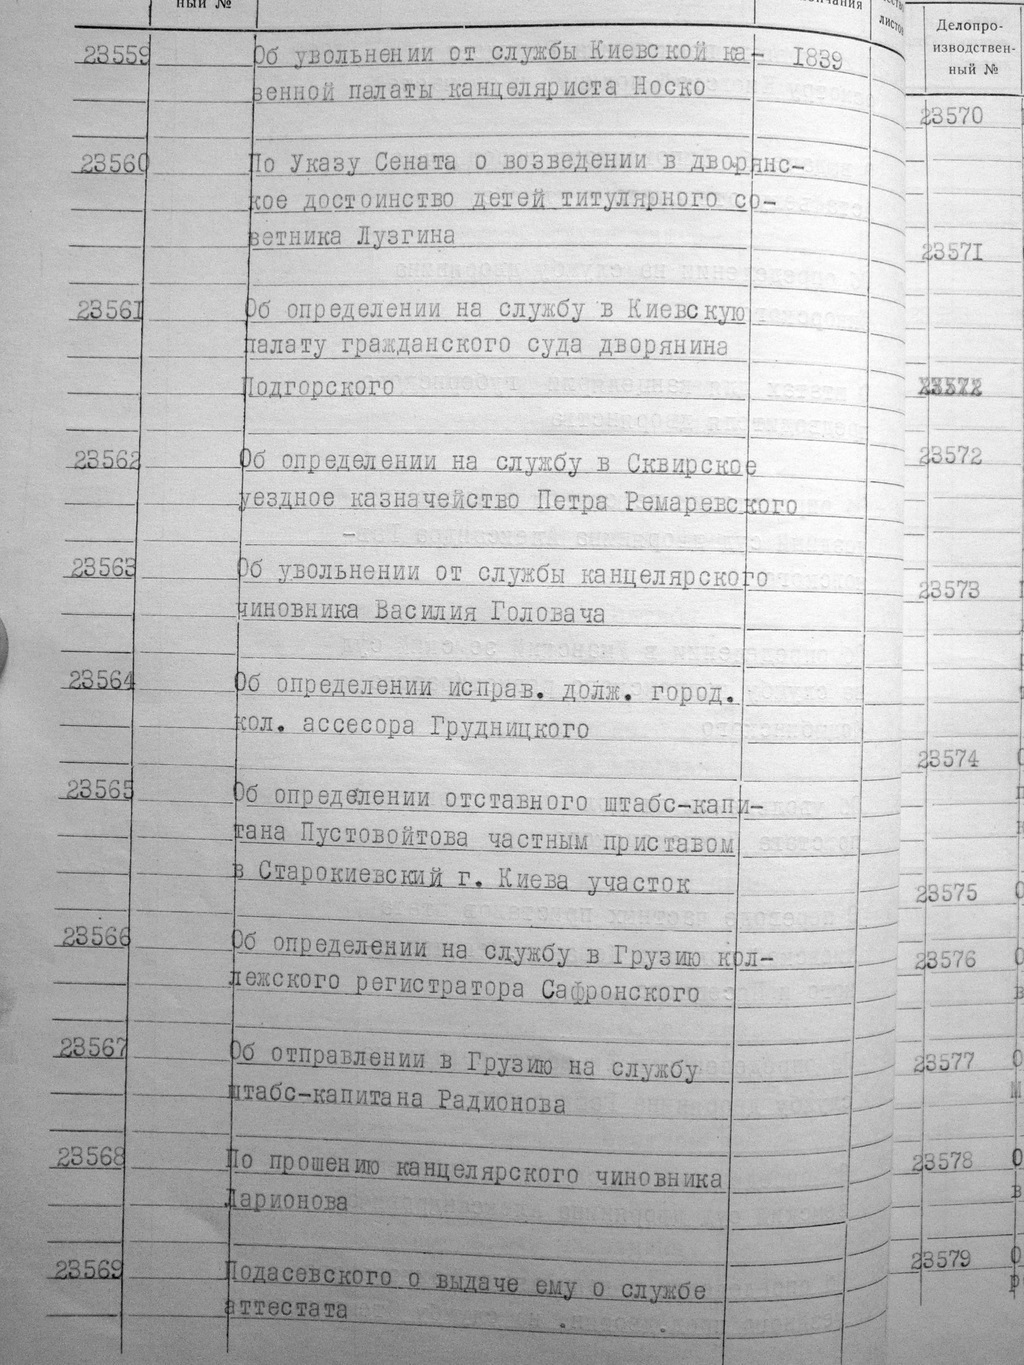 ный №
листов
23559 Об увольнении от службы Киевской ка- 1839
зенной палаты канцеляриста Носко
23560 По Указу Сената о возведении в дворянс-
кое достоинство детей титулярного со-
ветника Лузгина
23561 Об определении на службу в Киевскую
палату гражданского суда дворянина
Подгорского
23562 Об определении на службу в Сквирское
уездное казначейство Петра Ремаревского
23563 Об увольнении от службы канцелярского
чиновника Василия Головача
23564 Об определении исправ. долж. город.
кол. ассесора Грудницкого
23565 Об определении отставного штабс-капи-
тана Пустовойтова частным приставом
в Старокиевский г. Киева участок
23566 Об определении на службу в Грузию кол-
лежского регистратора Сафронского
23567 Об отправлении в Грузию на службу
штабс-капитана Радионова
23568 По прошению канцелярского чиновника
Ларионова
23569 Подасевского о выдаче ему о службе
аттестата
Делопро-
изводствен-
ный №
23570
23571
23572
23573
23574
23575
23576
23577
23578
23579